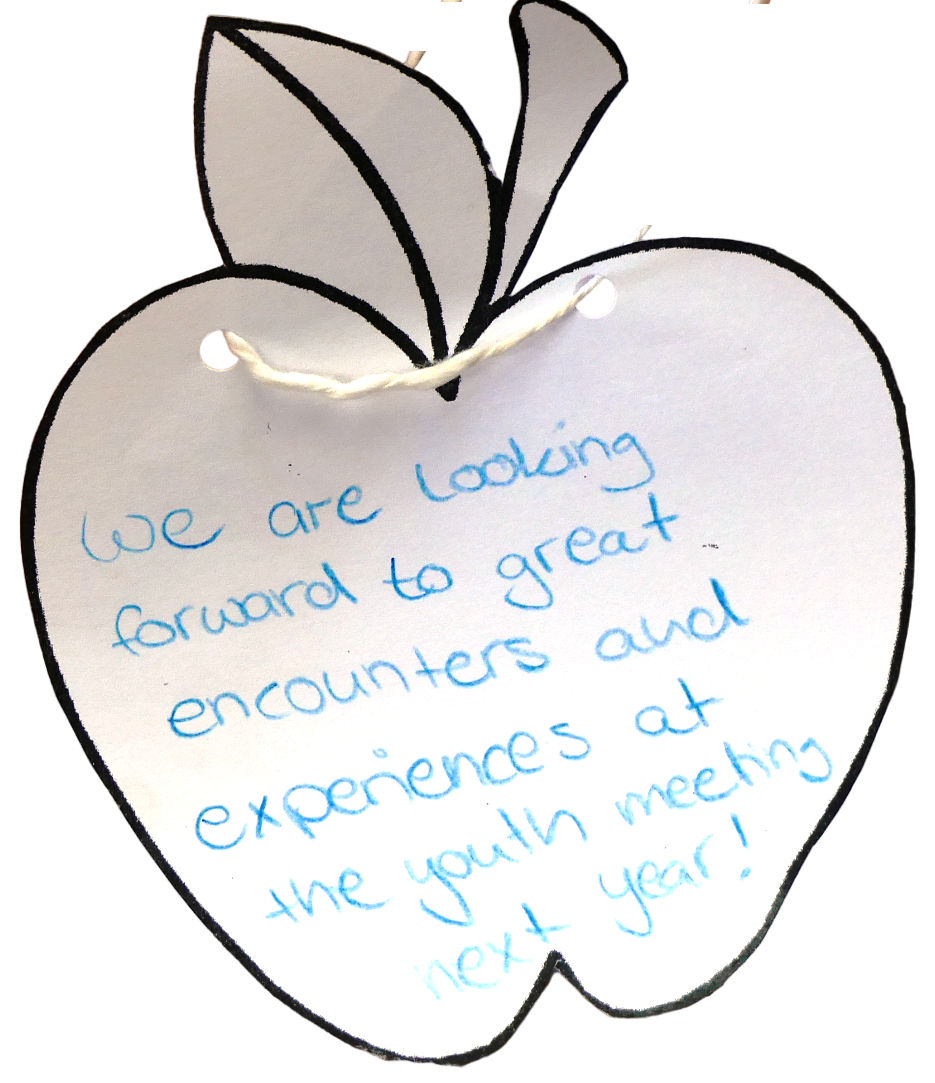 We are looking
forward to great
encounters and
experiences at
the youth meeting
next year!